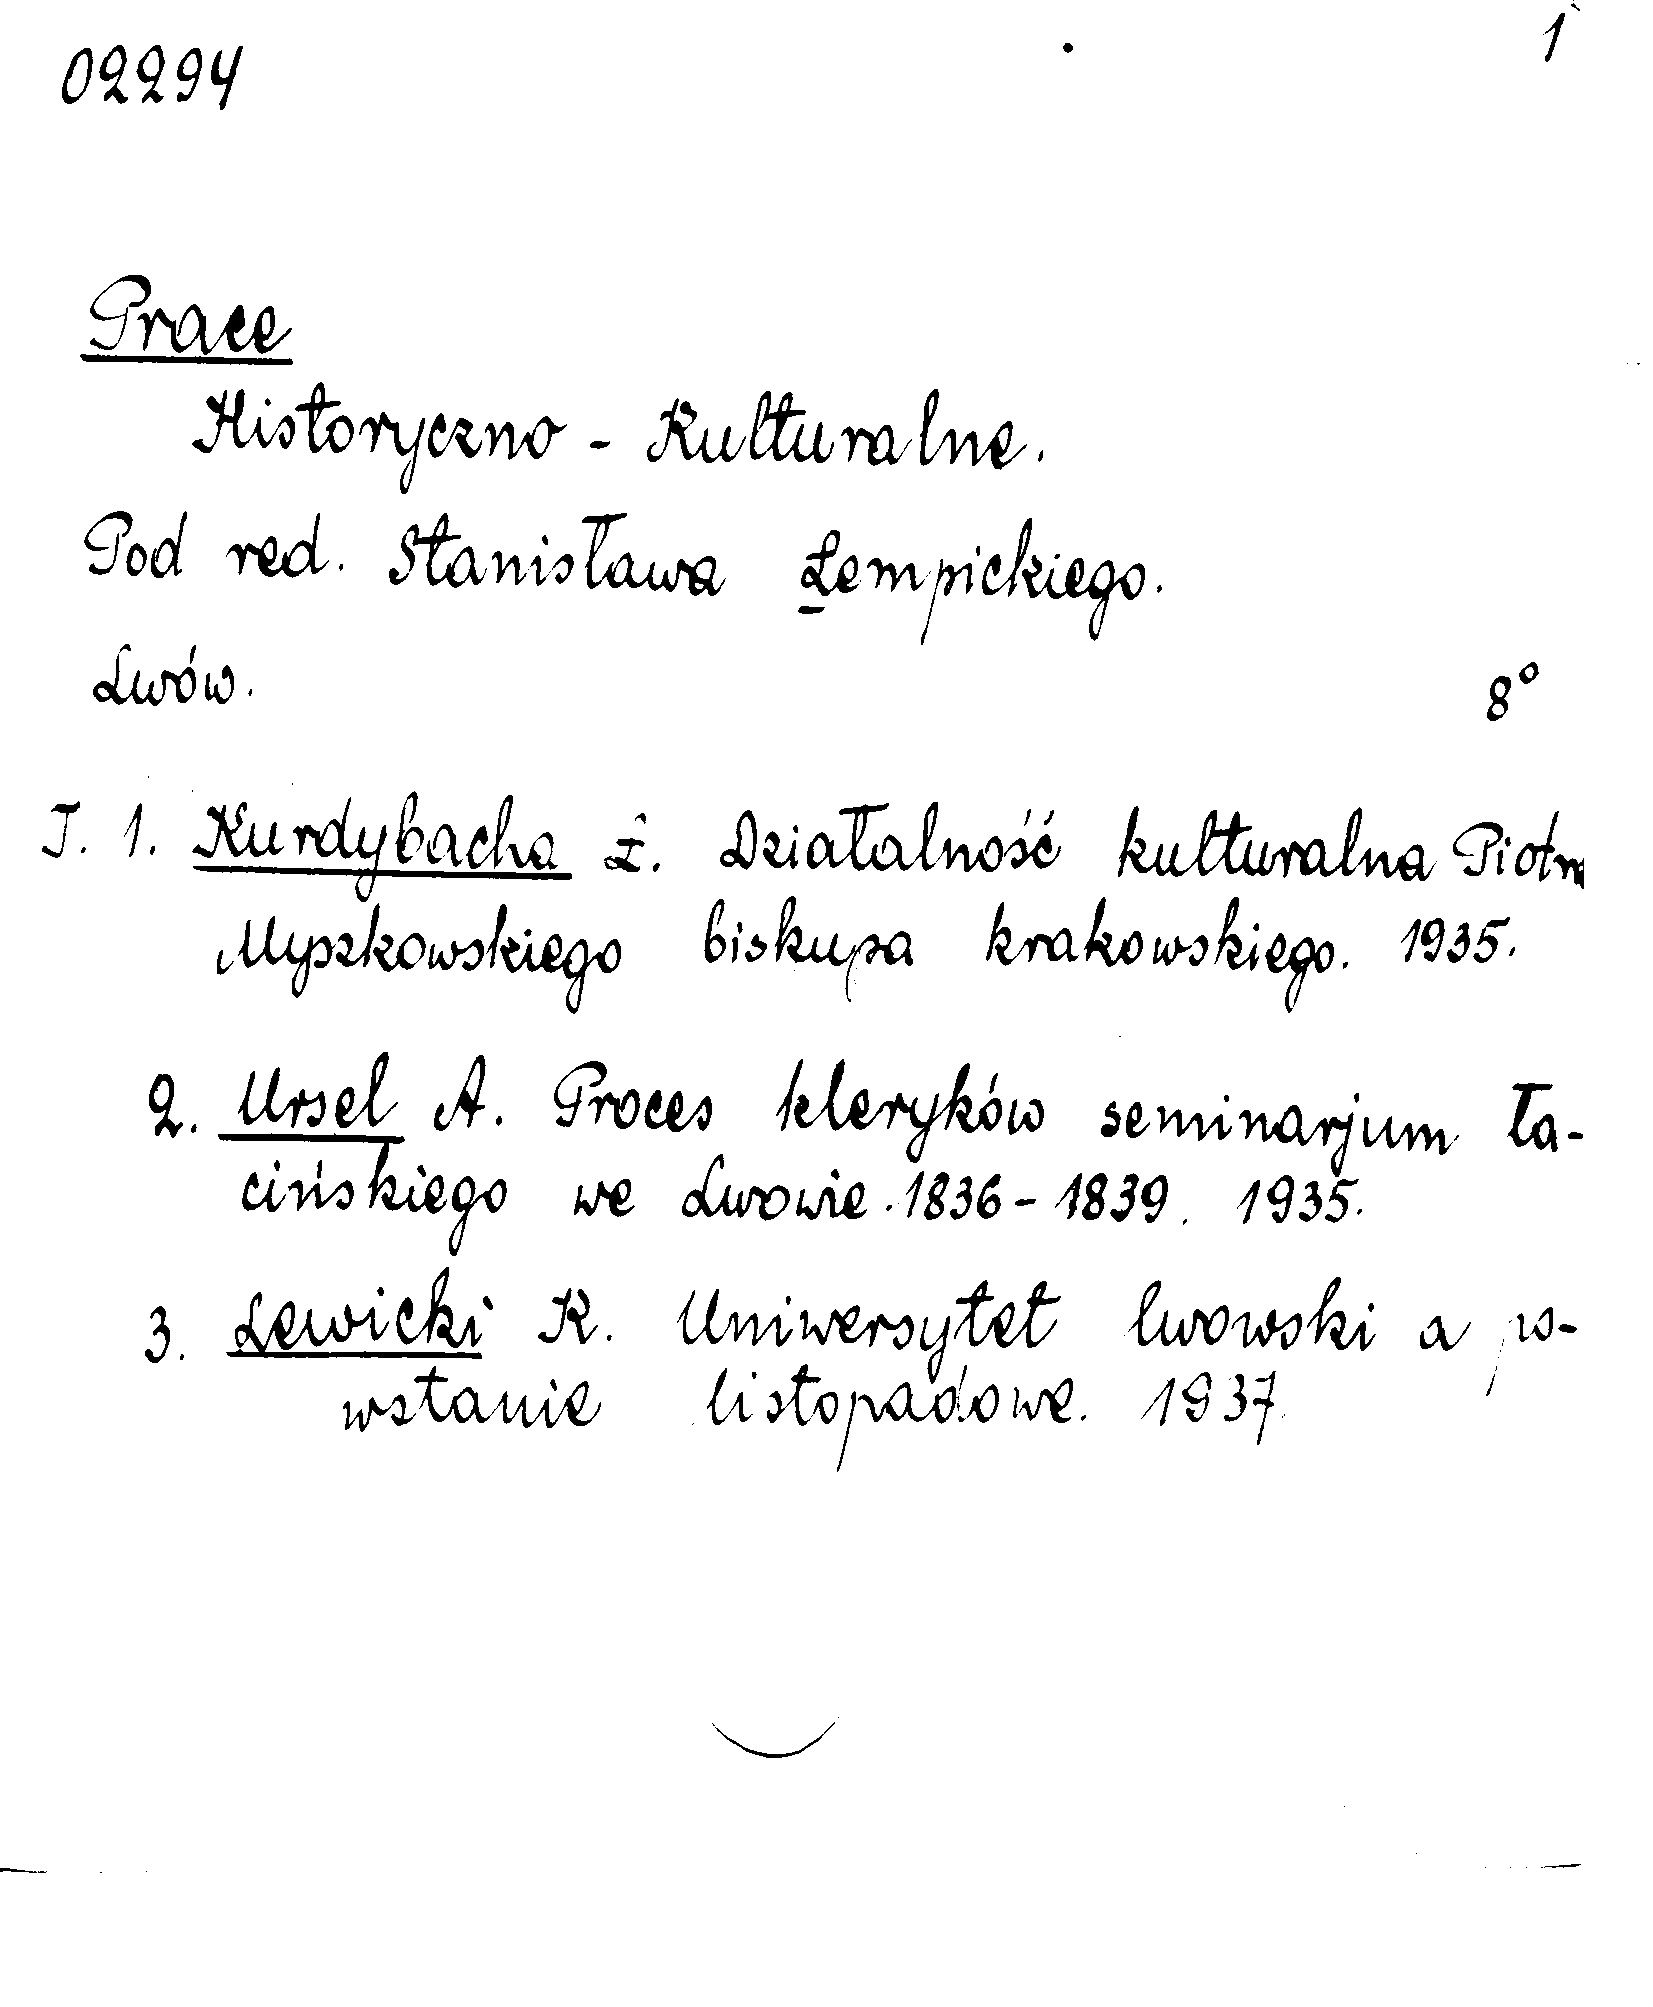 02294 1
Prace
Historyczno - Kulturalne.
Pod red. Stanisława Łempickiego.
Lwów. 8°
T. 1. Kurdybacha Ł. Działalność kulturalna Piotra
Myszkowskiego biskupa krakowskiego. 1935.
2. Ursel A. Proces kleryków seminarjum ła-
cińskiego we Lwowie. 1836-1839. 1935.
3. Lewicki K. Uniwersytet lwowski a po-
wstanie listopadowe. 1937.